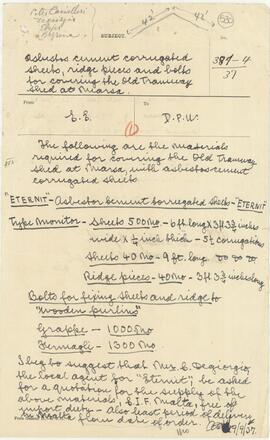 42' 42'
580
SUBJECT.
Asbestos cement corrugated
sheets, ridge pieces and bolts
for covering the Old Tramway
shed at Marsa.
381-4
37
From
To
E.E.
D.P.W.
(1)
The following are the materials
required for covering the Old Tramway
shed at Marsa, with asbestos cement
corrugated sheets
"ETERNIT" - Asbestos cement corrugated sheets - ETERNIT"
Type Monitor - Sheets 500 No - 6ft long x 3ft 3¾ inches
wide x ¼ inch thick - 5½ corrugations
Sheets 40 No - 9ft. long do do do
Ridge pieces - 40 No - 3ft 3¾ inches long
Bolts for fixing sheets and ridge to
"wooden purlins"
Grappe - 1000 No
Fermagli - 1300 No
I beg to suggest that Mr. E. Degiorgio,
the local agent for "Eternit", be asked
for a quotation for the supply of the
above materials, C.I.F. Malta, free of
import duty - also least period of delivery
Malta from date of order.